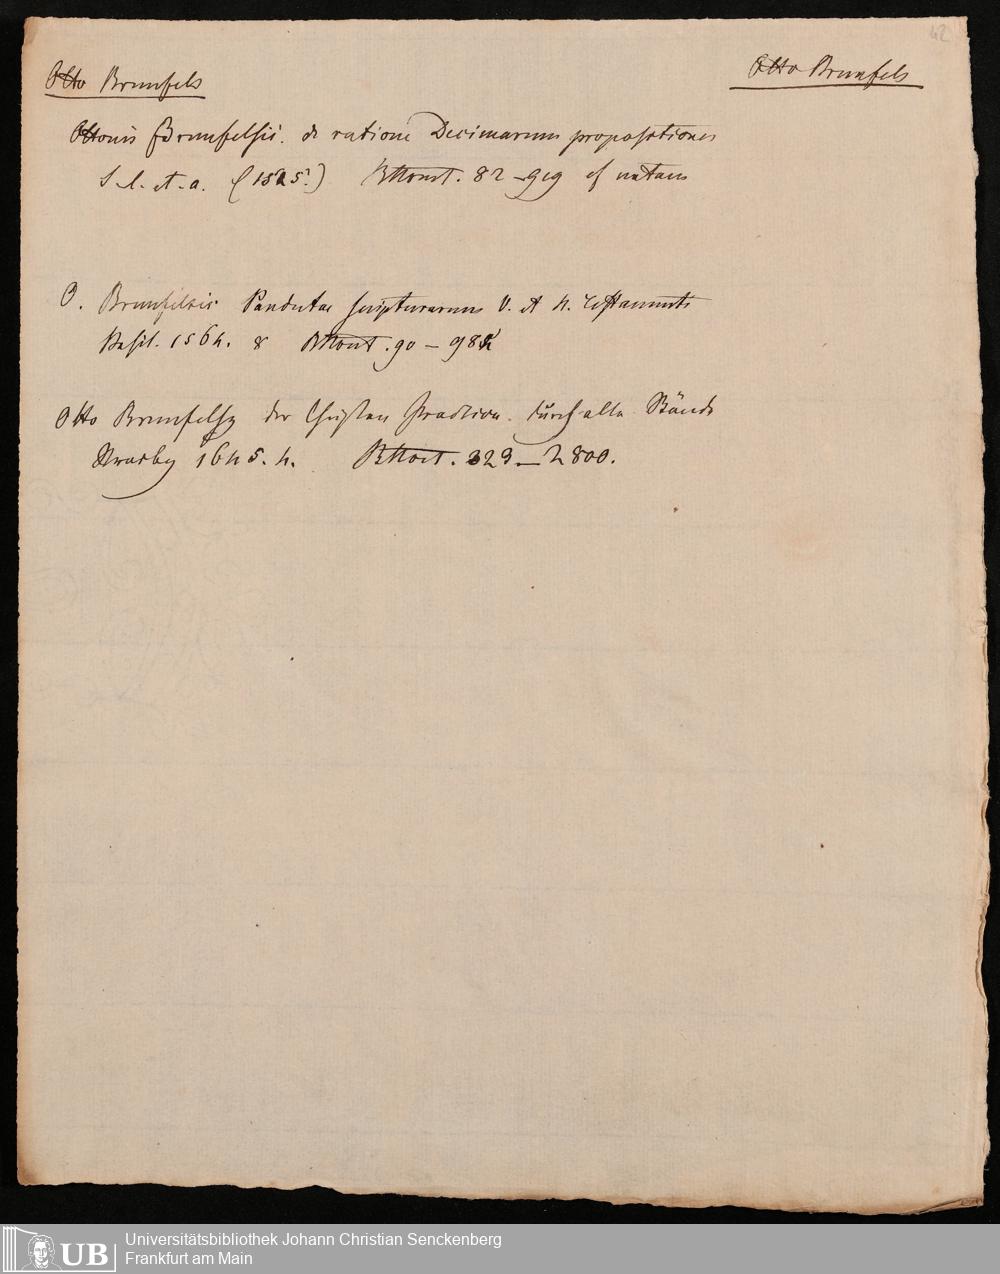 42
Otto Brunfels
Otto Brunfels
Ottonis Brunfelsii. de ratione Decimarum propositiones
S. l. et. a. (1525?) 82 – 919
O. Brunfelsii Pandectae scripturarum V. et N. Testamenti
Basil. 1564. 8 90 – 98
Otto Brunfelß der Christen Practica durch alle Stände
Strasbg 1645. 4. 323 – 2800.
UB Universitätsbibliothek Johann Christian Senckenberg
Frankfurt am Main